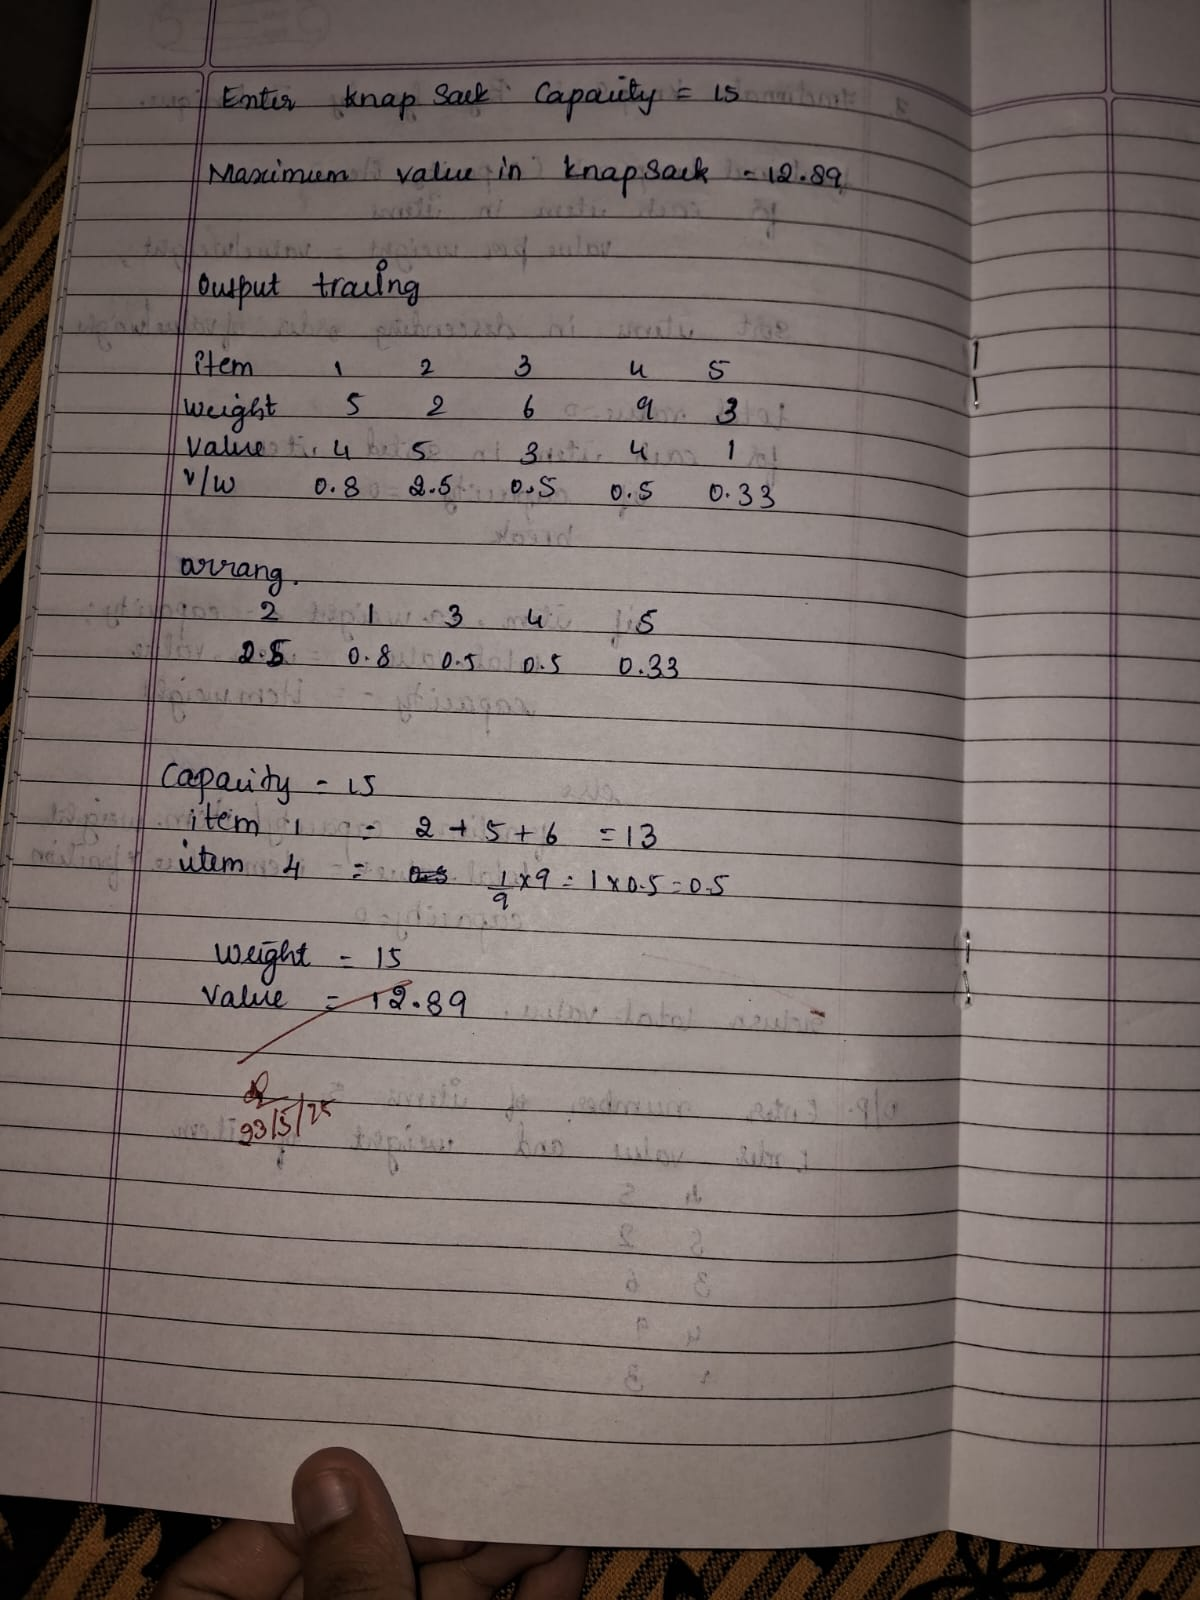 Enter knap Sack Capacity = 15
Maximum value in knapsack = 12.89
Output tracing
item 1 2 3 4 5
weight 5 2 6 9 3
Value 4 5 3 4 1
V/W 0.8 2.5 0.5 0.5 0.33
arrang.
2 1 3 4 5
2.5 0.8 0.5 0.5 0.33
Capacity = 15
item 1 = 2 + 5 + 6 = 13
item 4 = 0.5 1/9 x 9 = 1 x 0.5 = 0.5
Weight = 15
Value = 12.89
23/5/25